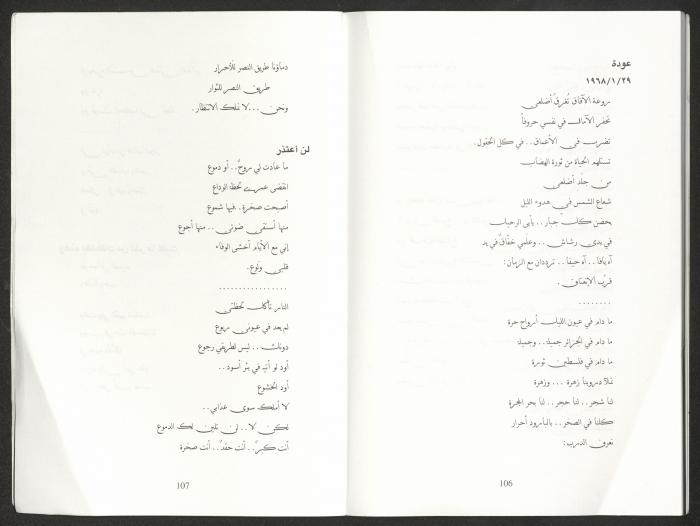 عودة
١٩٦٨/١/٢٩
روعة الآفاق تُفرقُ أضلعي
تحفر الآماق في نفسي حروفاً
تضرب في الأعماق.. في كل الحقول.
تستلهم الحياة من ثورة الهضاب
من جلد أضلعي
شعاع الشمس في هدوء الليل
يحضن كلَّ جبار.. يأبى الرحيل
في يدي رشاش.. وعلمي خفّاق في يد
آه يافا.. آه حيفا.. ترددان مع الزمان:
قرب الإنعتاق.
........
ما دام في عيون الليل أرواح حرة
ما دام في الجزائر جميلة.. وجميلة
ما دام في فلسطين ثورة
تملأ دروبنا زهرة ... وزهرة
لنا شجر.. لنا حجر.. لنا بحر المجرة
كلنا في الصخر.. بالبارود أحرار
نعرف الدرب:
106
دماؤنا طريق النصر للأحرار
طريق النصر للثوار
ونحن ...لا نملك الانتظار.
لن أعتذر
ما عادت لي روحٌ.. أو دموع
انقضى عمري لحظة الوداع
أصبحت صخرة.. فيها شموع
منها أستقي ضوئي.. منها أجوع
إني مع الأيام أخشى الوفاء
قلبي ولوع.
................
النار تأكل لحظتي
لم يعد في عيوني ربوع
دونك.. ليس لطريقي رجوع
أود لو أتيه في بئر أسود..
أود الخشوع
لا أملك سوى عذابي..
لكن لا.. لن تلين لك الدموع
أنت كبرٌ.. أنت حقدٌ.. أنت صخرة
107